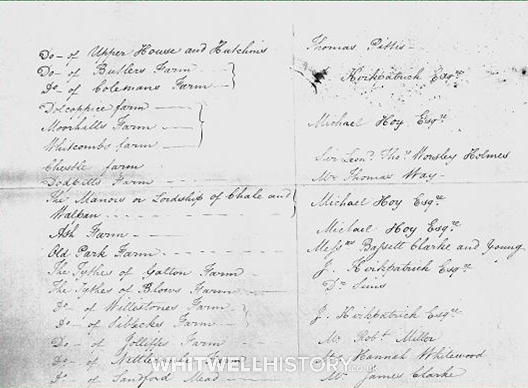 Do- of Upper House and Hutchins
Thomas Pittis-
Do- of Butlers Farm
Do- of Colemans Farm
Kirkpatrick Esqre
Dolcoppice farm
Moorhalls Farm
Whitcombs farm
Michael Hoy Esqre
Chestle farm
Sir Leond. Thos. Worsley Holmes
Dodbills Farm
Mr Thomas Way-
The Manors or Lordship of Chale and
Walpan
Michael Hoy Esqre
Ash Farm
Michael Hoy Esqre
Old Park Farm
Messrs Bassett Clarke and Young
The Tythes of Gatton Farm
J. Kirkpatrick Esqre
The Tythes of Blows Farm
Dr Sims
Do- of Willestones Farm
Do- of Sibbecks Farm
J. Kirkpatrick Esqre
Do- of Jolliffes Farm
Mr Robt Miller
Do- of Nettlecombe Farm
Mrs Hannah Whitewood
Do- of Sandford Mead
Mr James Clarke
WHITWELLHISTORY.co.uk